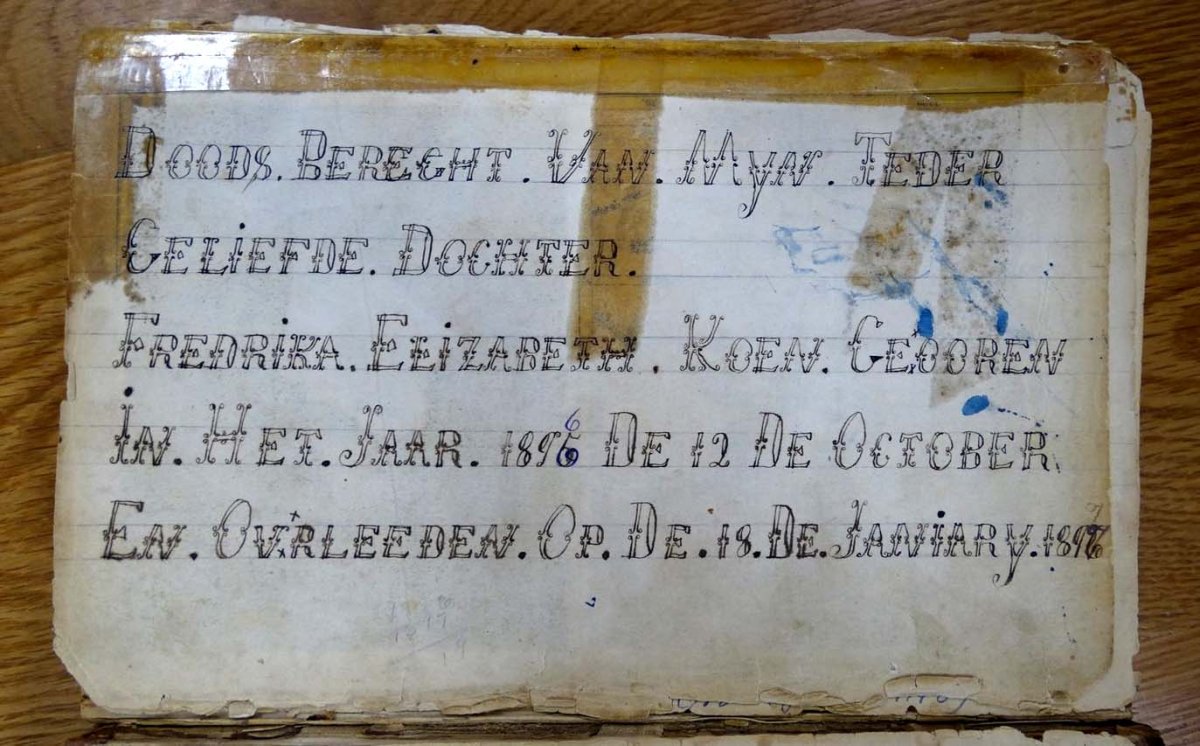 Doods. Berecht. Van. Myn. Teder
Geliefde. Dochter.
Fredrika. Elizabeth. Koen. Geboren
In. Het. Jaar. 1896 De 12 De October
En. Ov'rleeden. Op. De. 18. De. Janiary. 1897